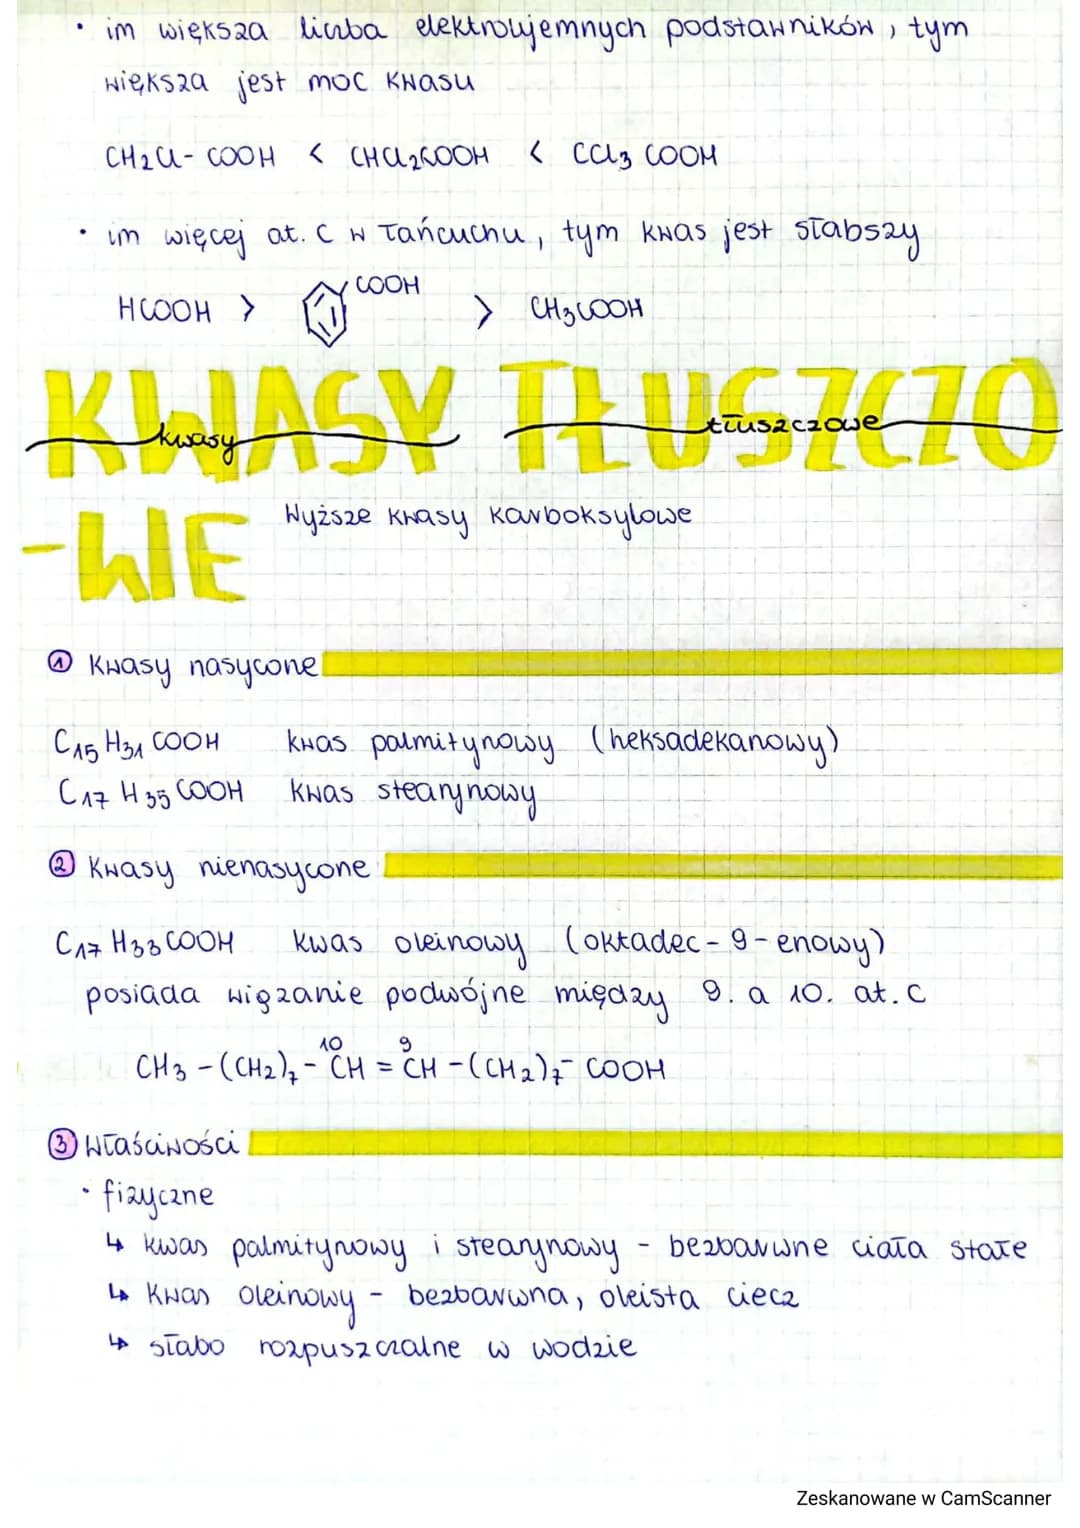 • im większa liczba elektroujemnych podstawników, tym
większa jest moc kwasu
CH₂Cl- COOH < CHCl₂COOH < CCl₃ COOH
• im więcej at. C w łańcuchu, tym kwas jest słabszy
HCOOH > COOH > CH₃COOH
KWASY TŁUSZCZO
kwasy tłuszczowe
-WE Wyższe kwasy karboksylowe
① Kwasy nasycone
C₁₅H₃₁COOH kwas palmitynowy (heksadekanowy)
C₁₇H₃₅COOH kwas stearynowy
② Kwasy nienasycone
C₁₇H₃₃COOH kwas oleinowy (oktadec-9-enowy)
posiada wiązanie podwójne między 9. a 10. at. C
10 9
CH₃-(CH₂)₇-CH = CH-(CH₂)₇-COOH
③ Właściwości
• fizyczne
↳ kwas palmitynowy i stearynowy - bezbarwne ciała stałe
↳ kwas oleinowy - bezbarwna, oleista ciecz
↳ słabo rozpuszczalne w wodzie
Zeskanowane w CamScanner